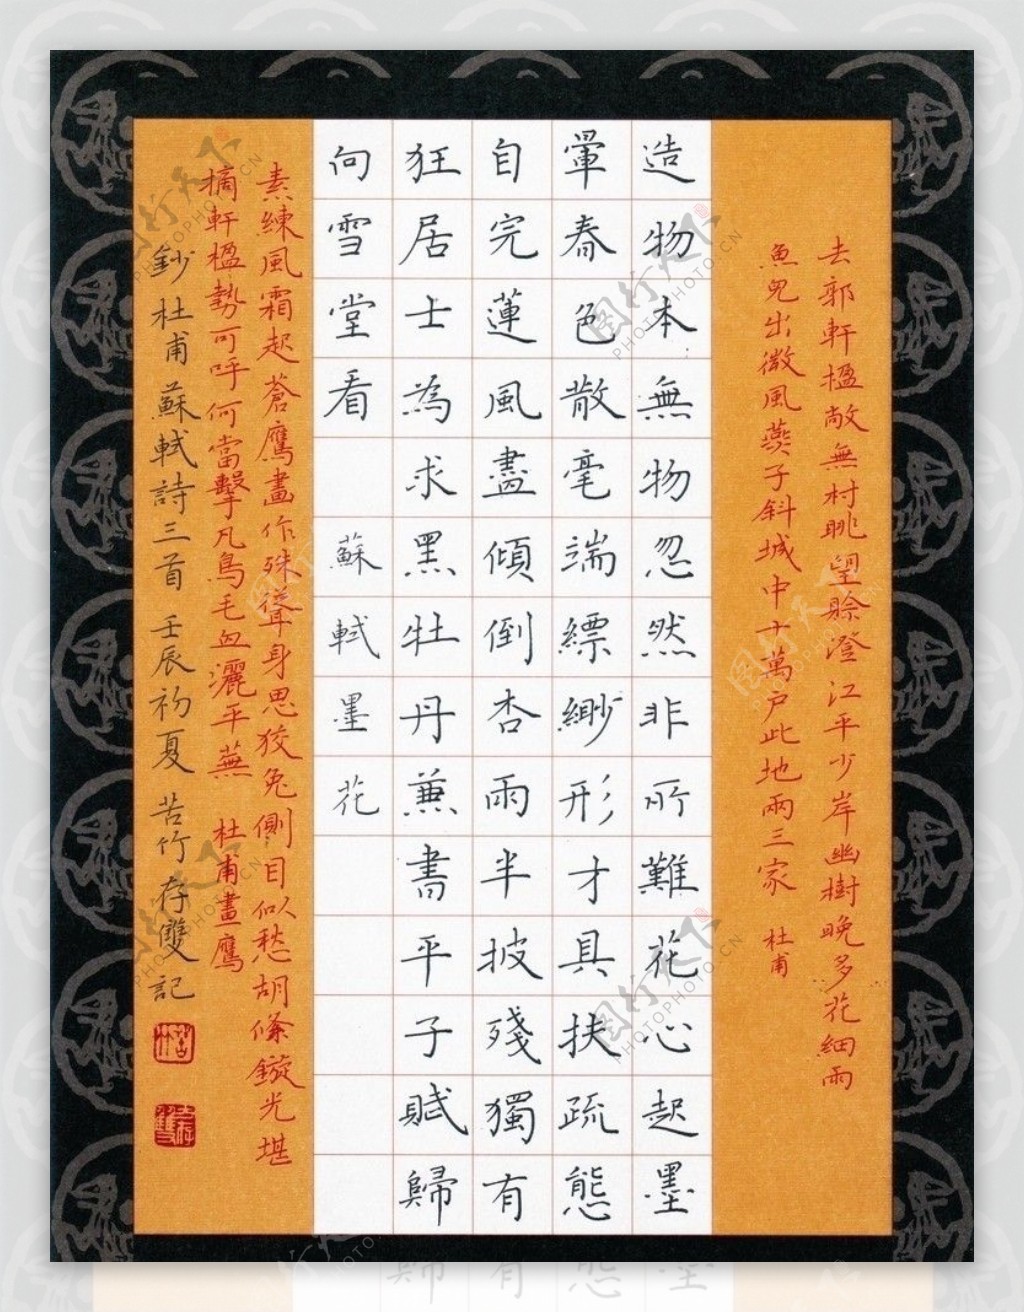 去郭軒楹敞無村眺望賒澄江平少岸幽樹晚多花細雨
魚兒出微風燕子斜城中十萬戶此地兩三家 杜甫
造物本無物忽然非所難花心起墨
暈春色散毫端縹緲形才具扶疏態
自完蓮風盡傾倒杏雨半披殘獨有
狂居士為求黑牡丹兼書平子賦歸
向雪堂看 蘇軾墨花
素練風霜起蒼鷹畫作殊㩳身思狡兔側目似愁胡絛鏇光堪
摘軒楹勢可呼何當擊凡鳥毛血灑平蕪 杜甫畫鷹
鈔杜甫蘇軾詩三首 壬辰初夏 苦竹存雙記